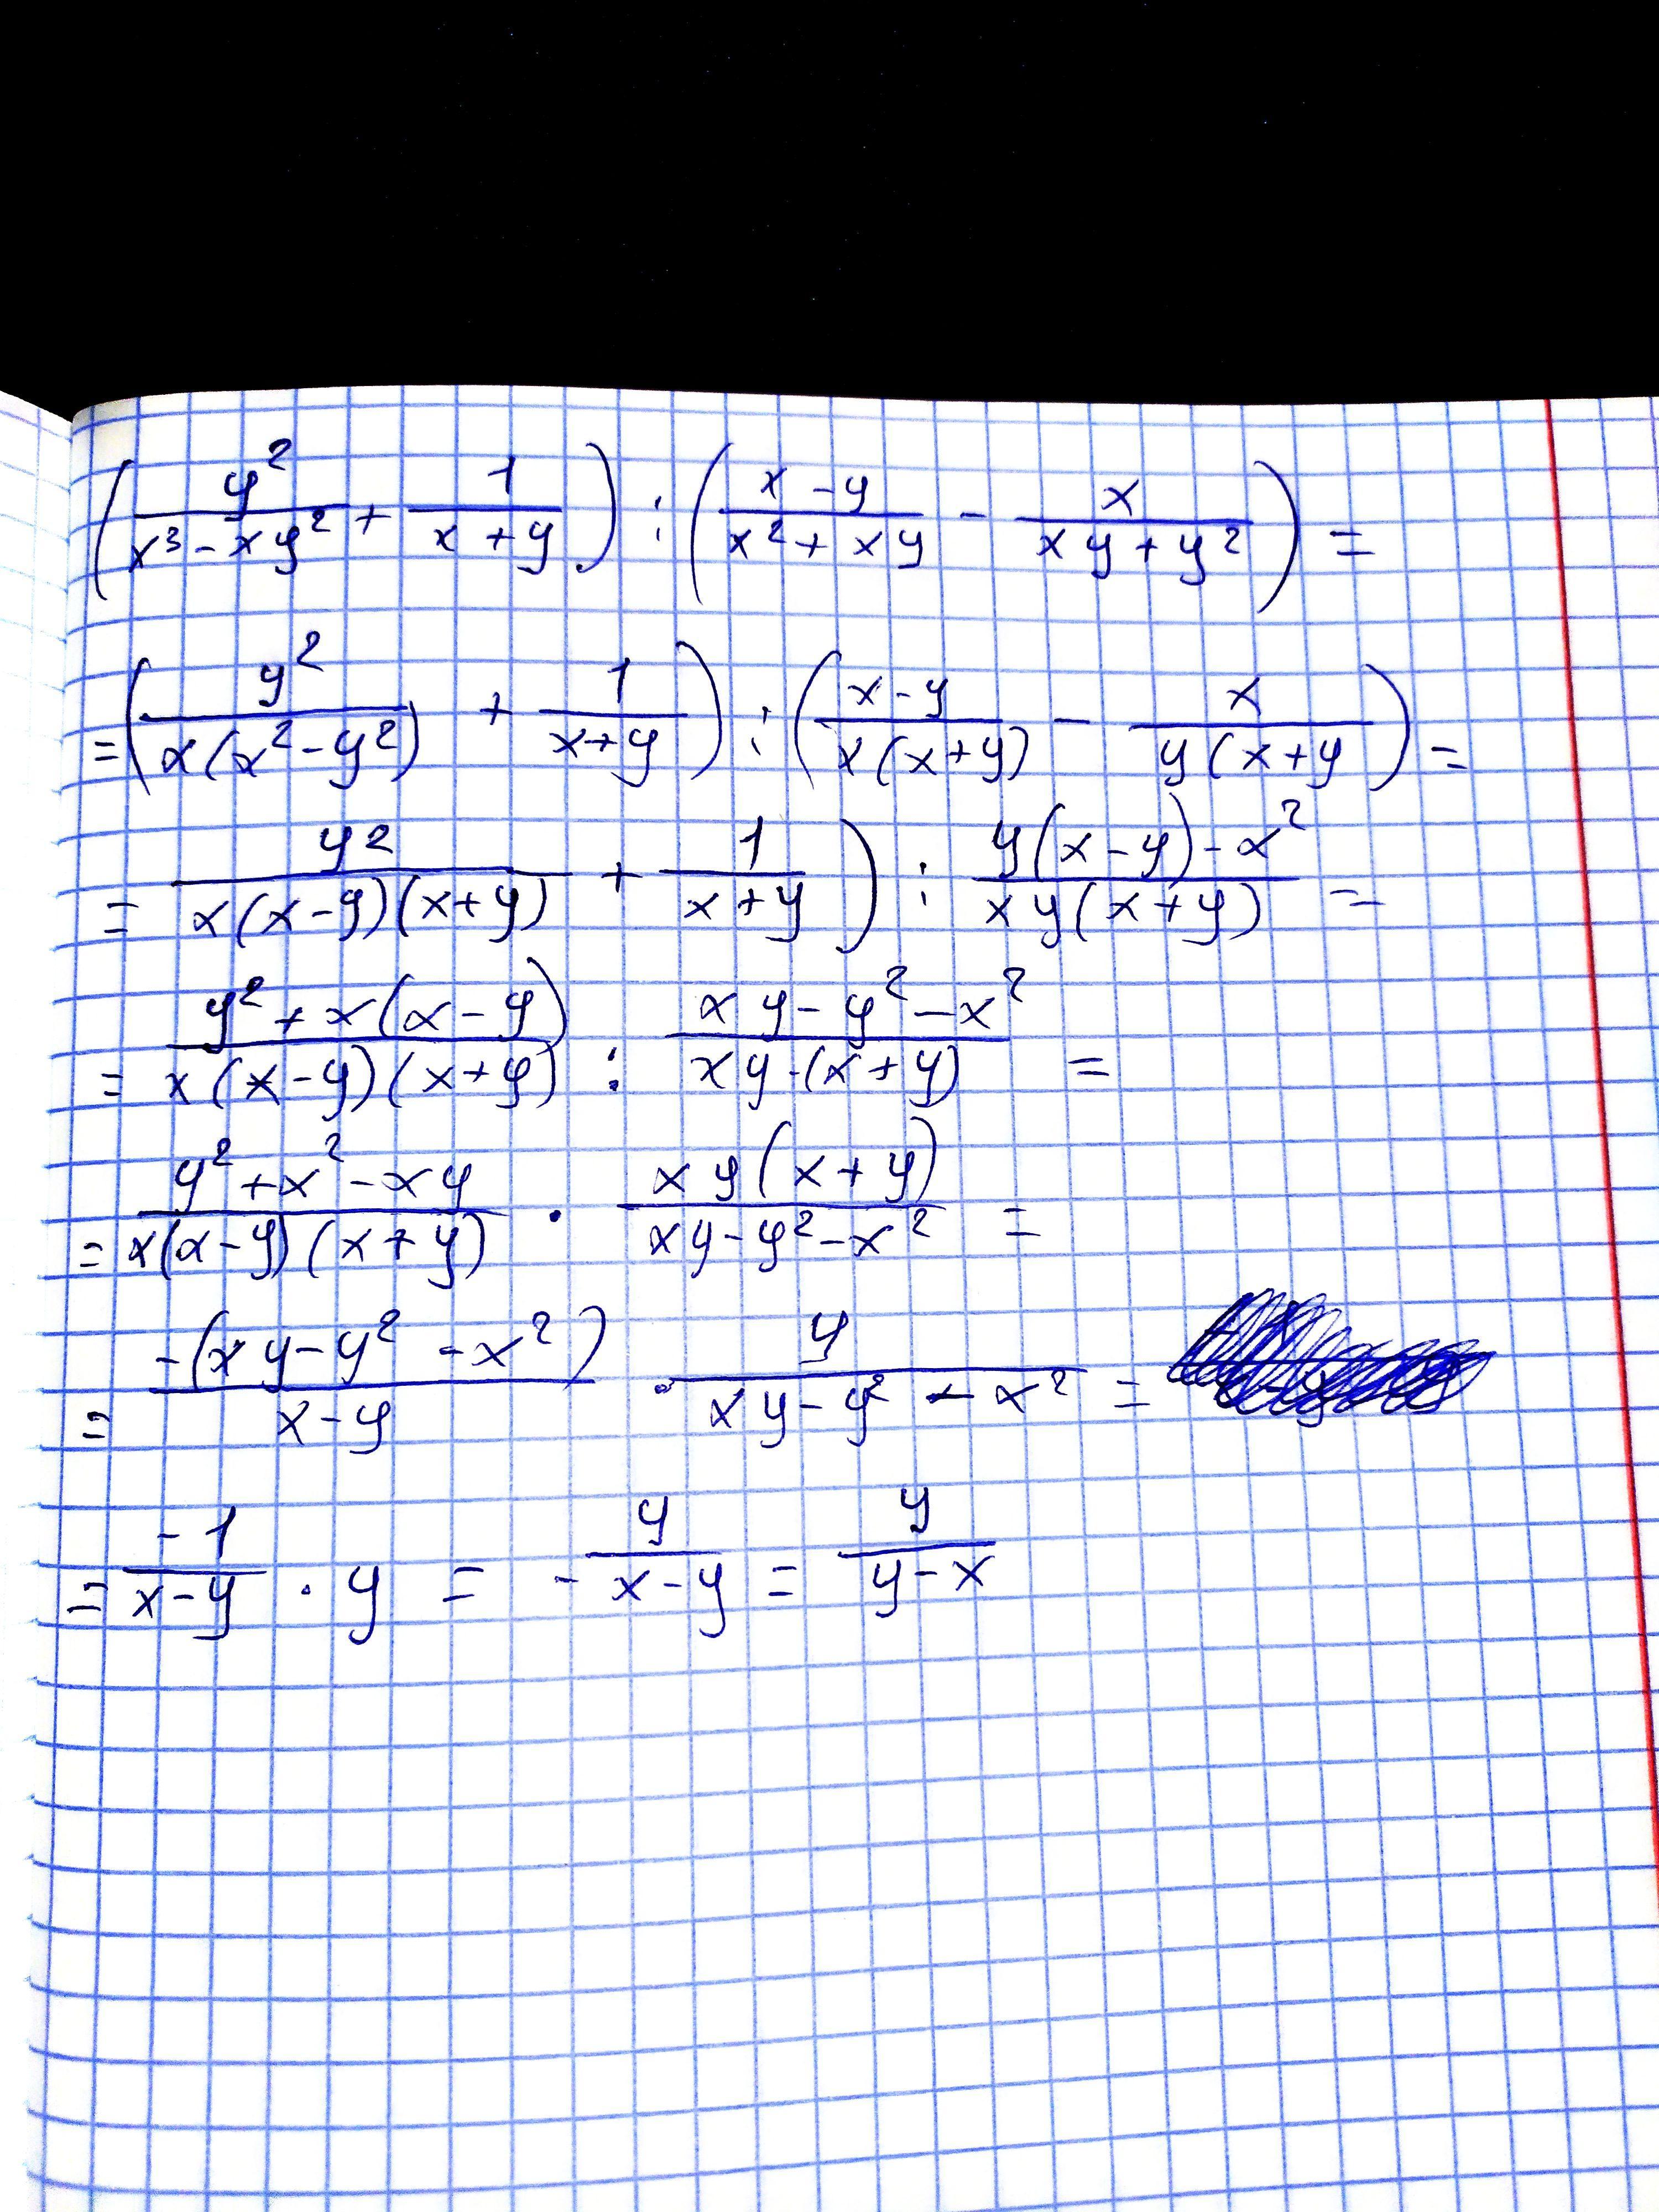 (y²/(x³-xy²) + 1/(x+y)) : ((x-y)/(x²+xy) - x/(xy+y²)) =
= (y²/(x(x²-y²)) + 1/(x+y)) : ((x-y)/(x(x+y)) - x/(y(x+y)) =
= y²/(x(x-y)(x+y)) + 1/(x+y)) : (y(x-y)-x²)/(xy(x+y)) =
= (y²+x(x-y))/(x(x-y)(x+y)) : (xy-y²-x²)/(xy·(x+y)) =
= (y²+x²-xy)/(x(x-y)(x+y)) · (xy(x+y))/(xy-y²-x²) =
= -(xy-y²-x²)/(x-y) · y/(xy-y²-x²) =
= -1/(x-y) · y = - y/(x-y) = y/(y-x)